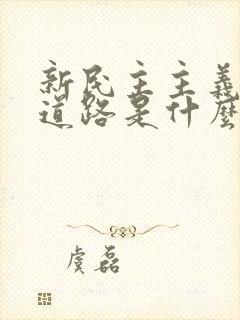 新民主主義
道路是什麼
虞磊